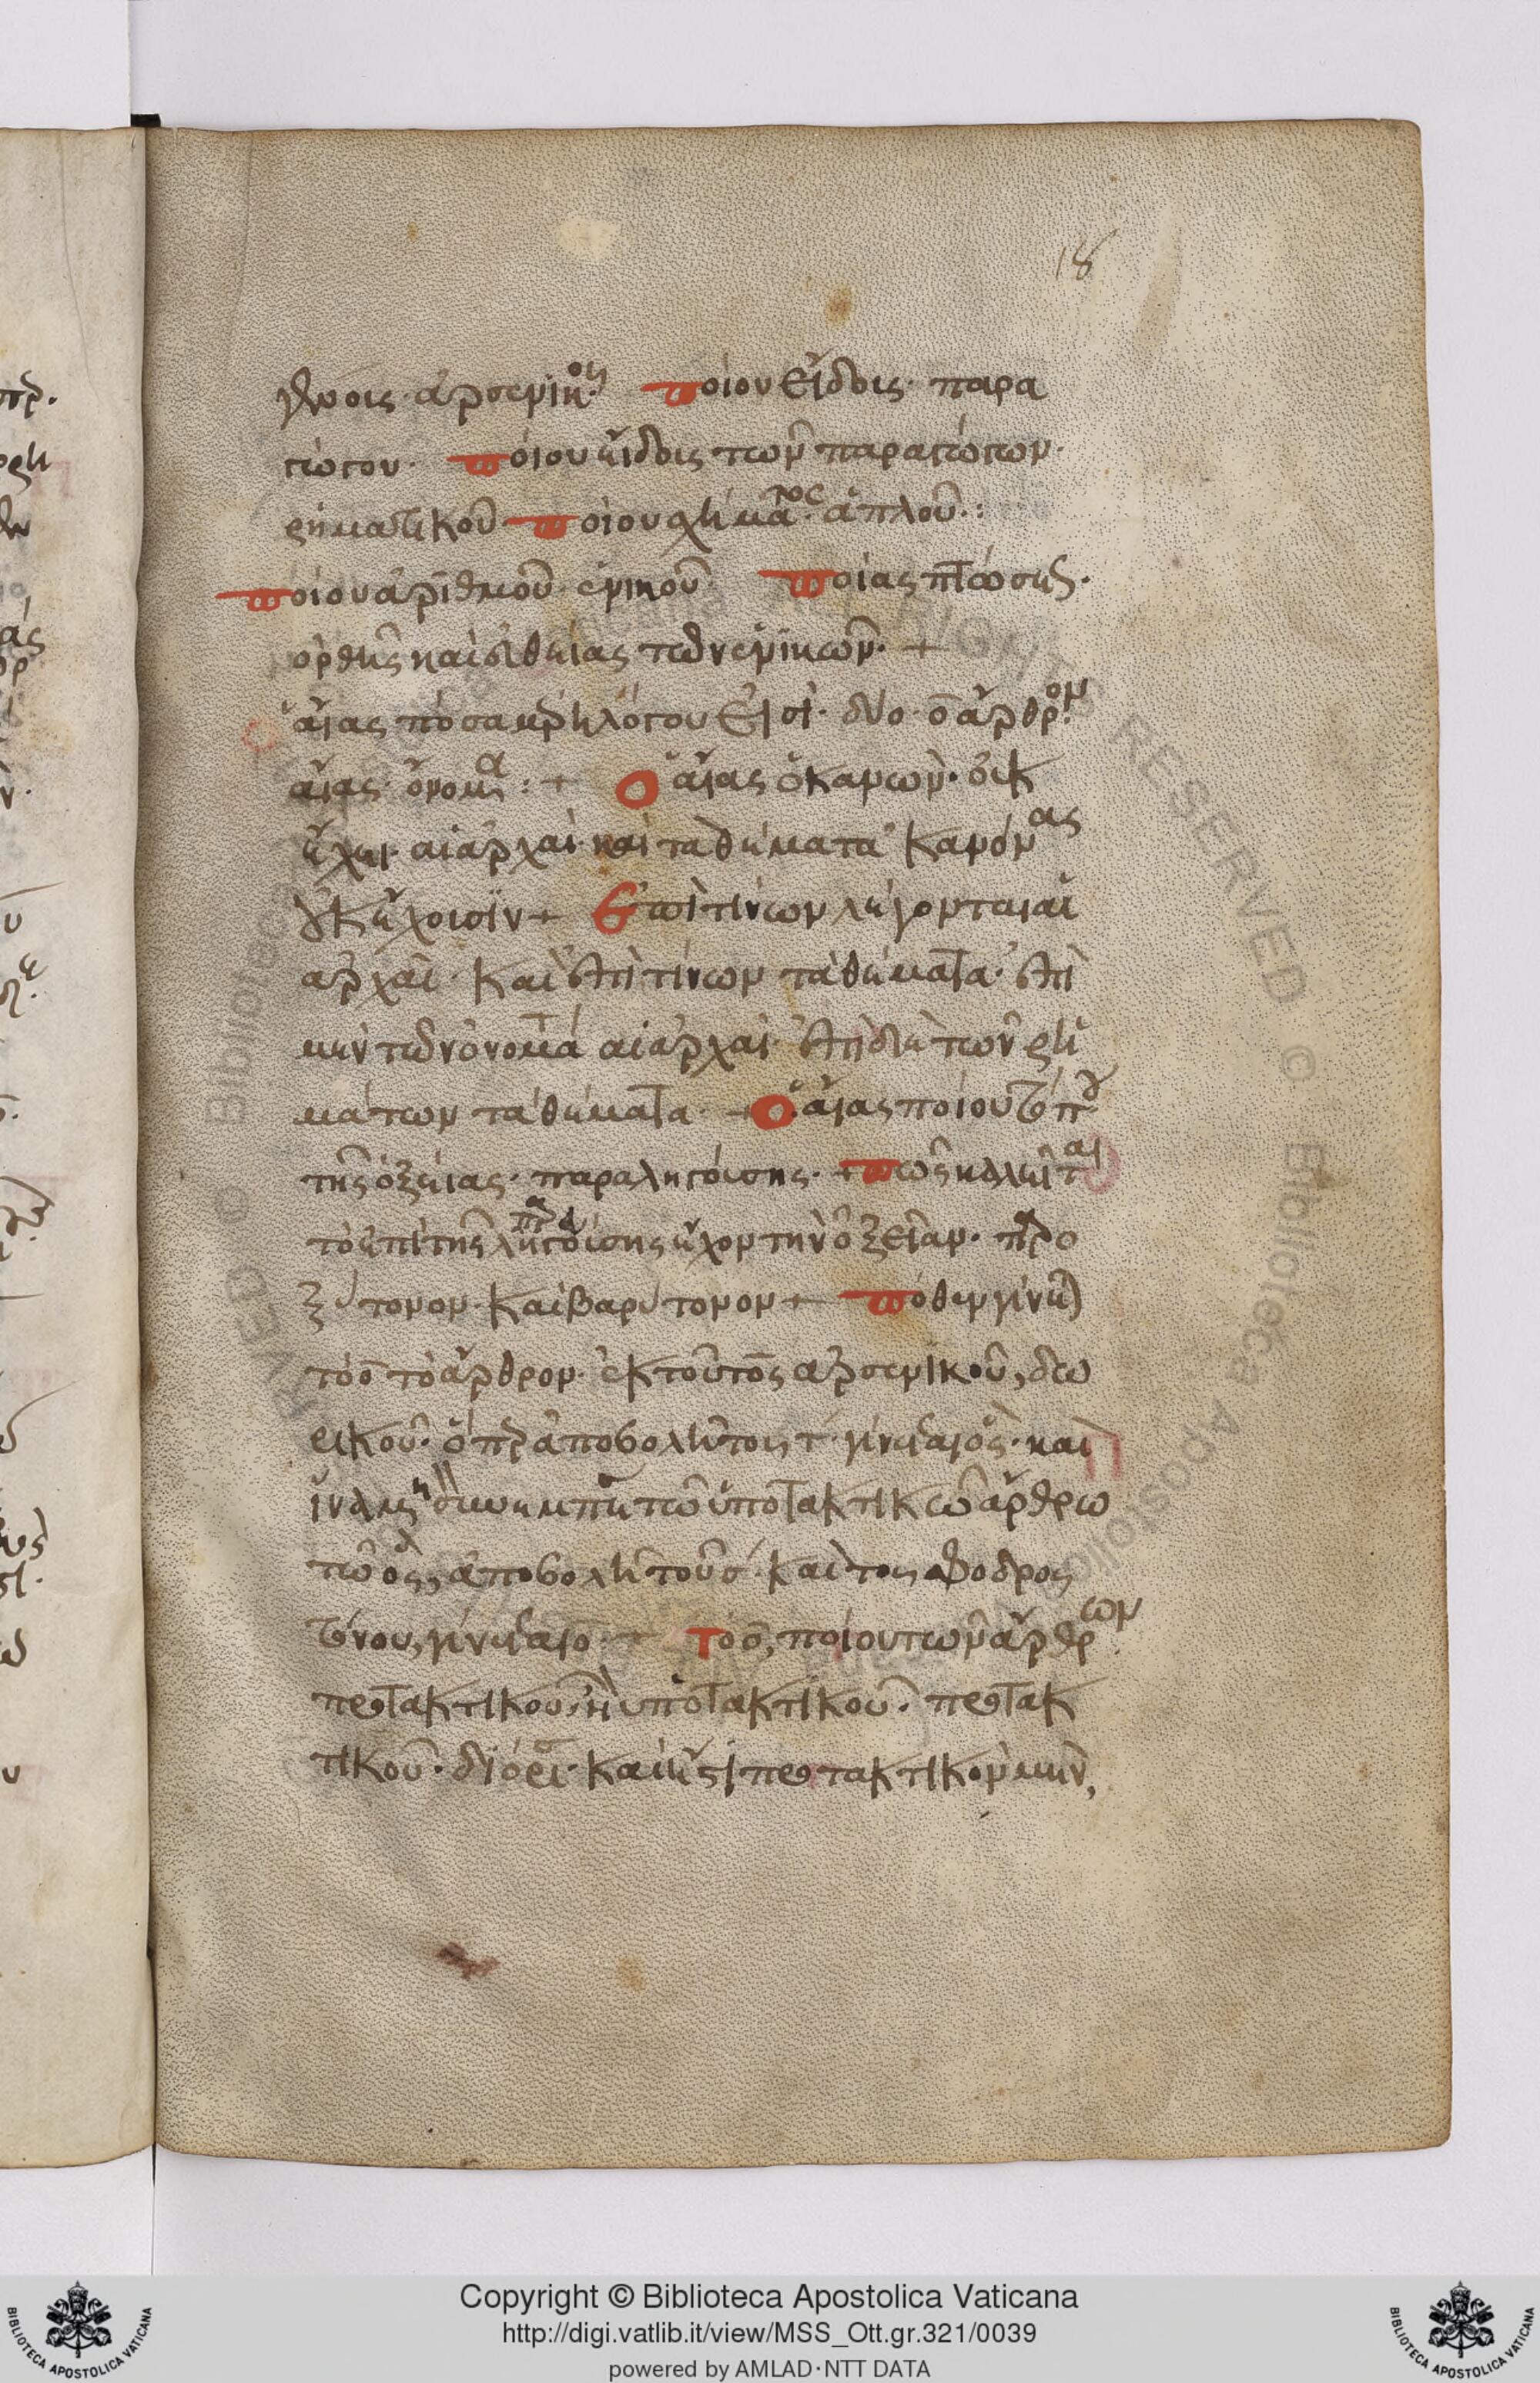 18
γένοις· ἀρσενικοῦ Ποίου εἴδοις· παρα
γώγου· Ποίου εἴδοις τῶν παραγώγων·
ῥηματικοῦ Ποίου σχήματος· ἁπλοῦ·:
Ποίου ἀριθμοῦ· ἑνικοῦ· Ποίας πτώσεως·
ὀρθῆς καὶ εὐθείας τῶν ἑνικῶν· +
ὁ αἴας πόσα μέρη λόγου εἰσί· δύο· ὁ ἄρθρον
αἴας· ὄνομα: + Ο αἴας ὁ κανών· οὐκ
ἔχει· αἱ ἀρχαὶ καὶ τὰ θέματα κανόνας
οὐκ ἔχουσιν + Επὶ τίνων λέγονται αἱ
ἀρχαί· καὶ ἐπὶ τίνων τὰ θέματα· ἐπὶ
μὲν τῶν ὀνομάτ αἱ ἀρχαί· ἐπὶ δὲ τῶν ῥη
μάτων τὰ θέματα· + Ο αἴας ποίου τόνου
τῆς ὀξείας· παραληγούσης· + Πῶς καλεῖται
τὸ ἐπὶ τῆς παραληγούσης ἔχον τὴν ὀξεῖαν· παρο
ξύτονον καὶ βαρύτονον + Πόθεν γίνεται
τὸ ὁ τὸ ἄρθρον· ἐκ τοῦ τὸς ἀρσενικοῦ, δω
ρικοῦ· ὅπερ ἀποβολῇ τοῦ τ· γίνεται ὅς· καὶ
ἵνα μὴ συνεμπέση τῷ ὑποτακτικῷ ἄρθρω
τῷ ὅς, ἀποβολῇ τοῦ σ· καὶ τοῦ σφοδροῦ
τόνου, γίνεται ὁ· + Τὸ ὁ, ποίου τῶν ἄρθρων
προτακτικοῦ· ἢ ὑποτακτικοῦ· προτακ
τικοῦ· διόρι· καὶ ἔστι προτακτικὸν μὲν,
Copyright © Biblioteca Apostolica Vaticana
http://digi.vatlib.it/view/MSS_Ott.gr.321/0039
powered by AMLAD·NTT DATA